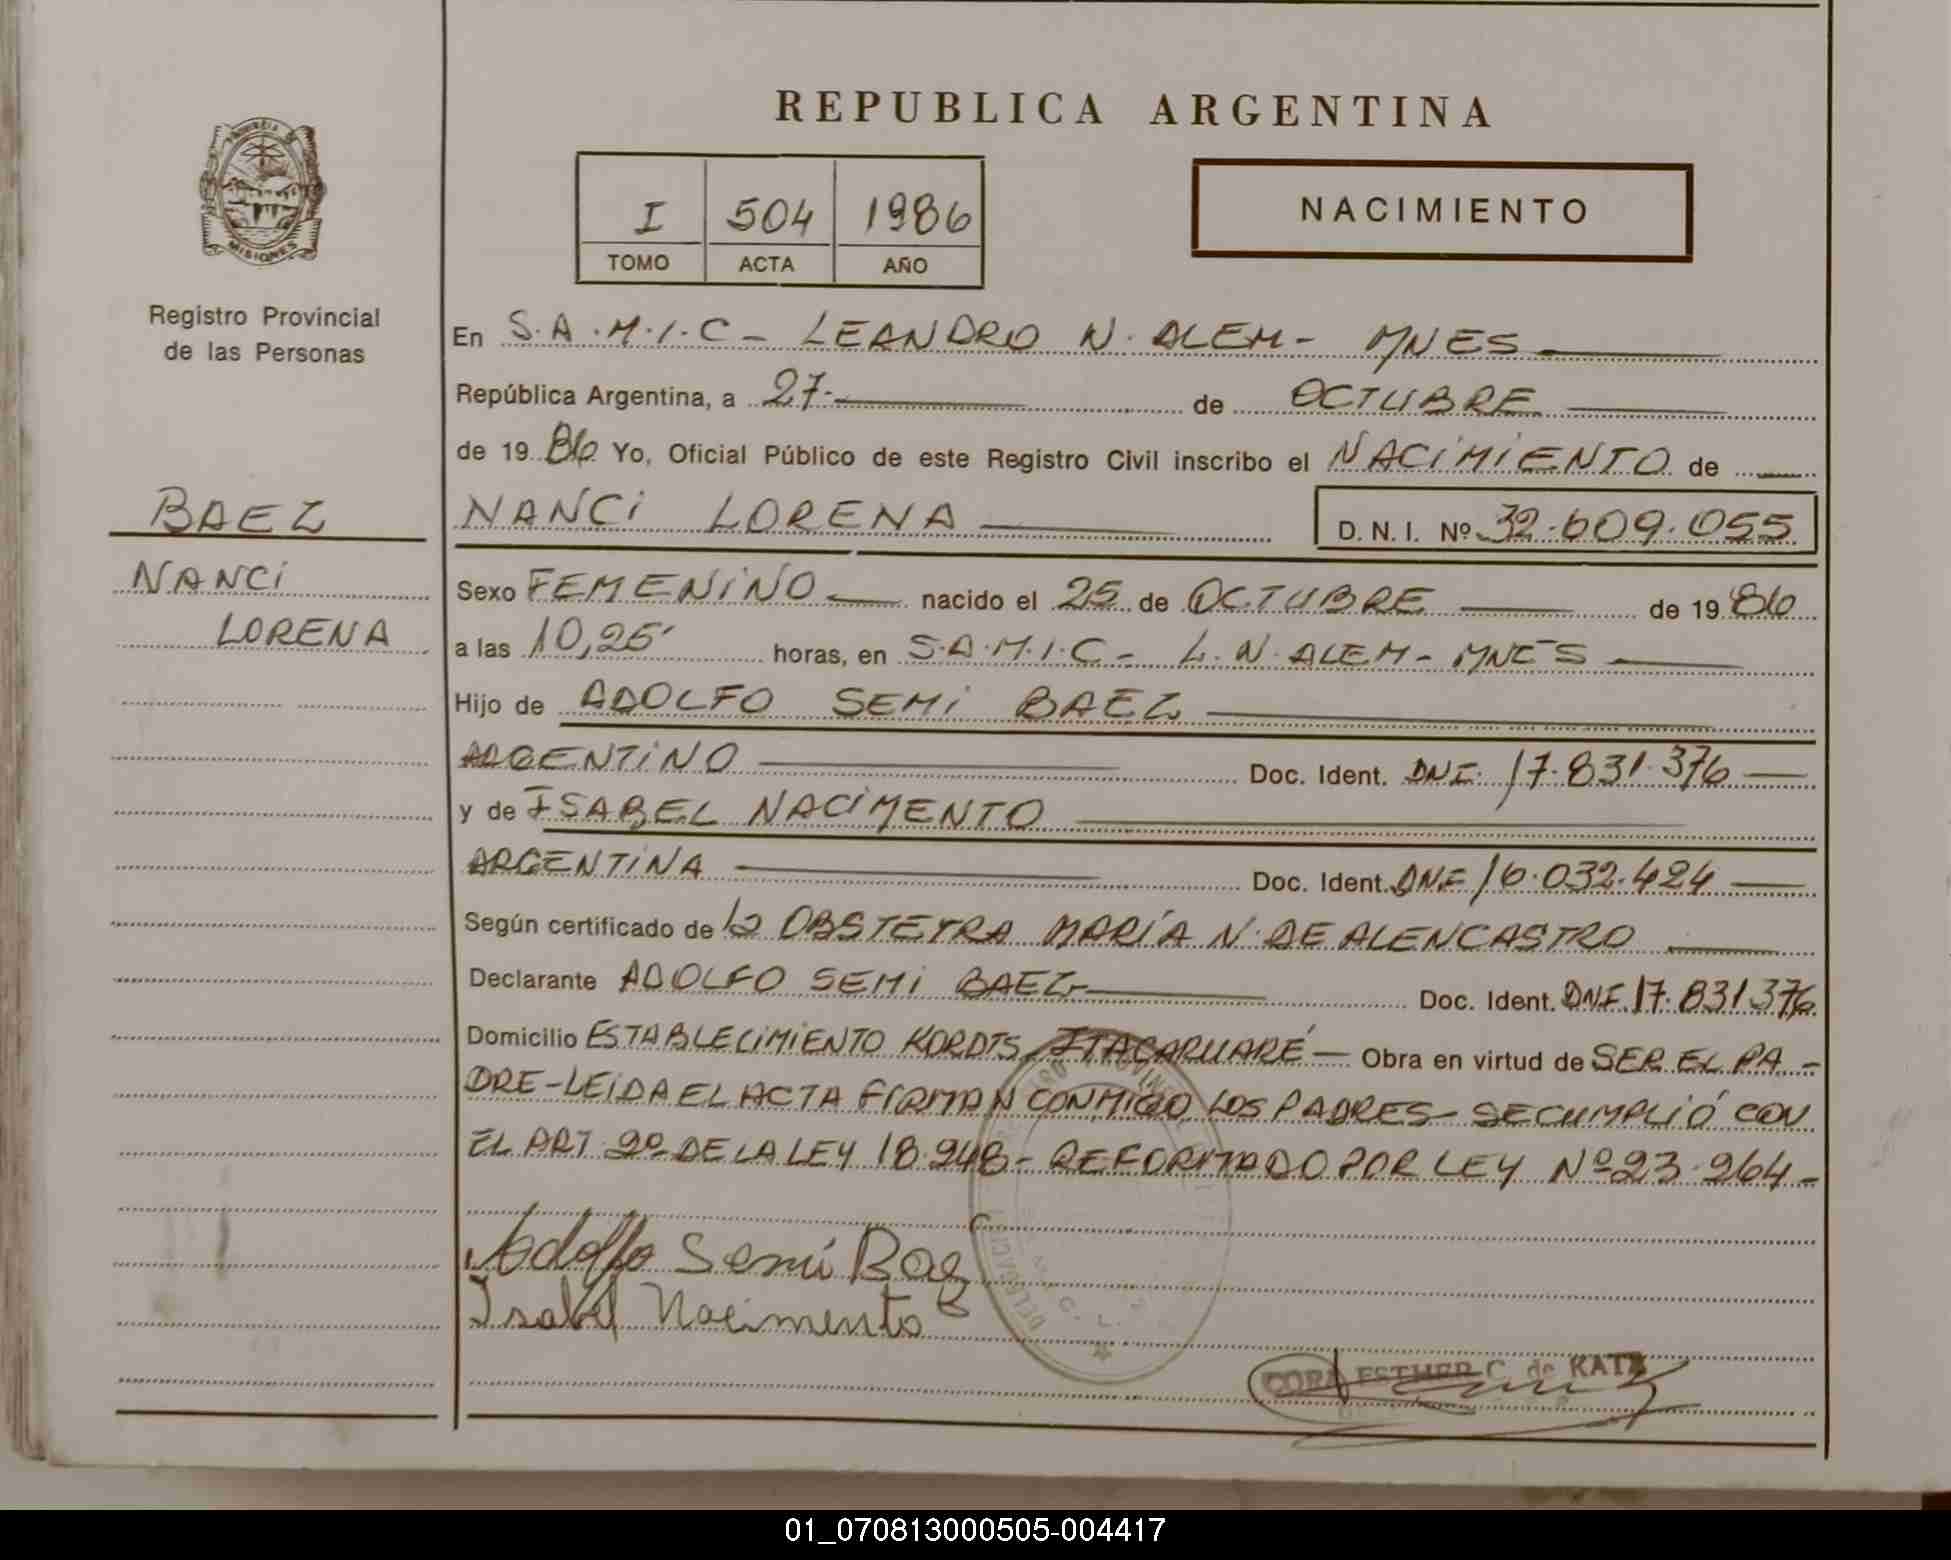 REPUBLICA ARGENTINA
PROVINCIA DE
MISIONES
Registro Provincial
de las Personas
I 504 1986
TOMO ACTA AÑO
NACIMIENTO
En S.A.M.I.C - LEANDRO N. ALEM - MNES
República Argentina, a 27 de OCTUBRE
de 19 86 Yo, Oficial Público de este Registro Civil inscribo el NACIMIENTO de
BAEZ
NANCI
LORENA
NANCI LORENA D. N. I. Nº 32.609.055
Sexo FEMENINO nacido el 25 de OCTUBRE de 19 86
a las 10,25' horas, en S.A.M.I.C - L. N. ALEM - MNES
Hijo de ADOLFO SEMI BAEZ
ARGENTINO Doc. Ident. DNI 17.831.376
y de ISABEL NACIMENTO
ARGENTINA Doc. Ident. DNI 16.032.424
Según certificado de la OBSTETRA MARÍA N. DE ALENCASTRO
Declarante ADOLFO SEMI BAEZ Doc. Ident. DNI 17.831.376
Domicilio ESTABLECIMIENTO KORDTS, ITACARUARÉ - Obra en virtud de SER EL PA-
DRE - LEIDA EL ACTA FIRMAN CONMIGO, LOS PADRES - SE CUMPLIÓ CON
EL ART 2º DE LA LEY 18.248 - REFORMADO POR LEY Nº 23.264 -
Adolfo Semi Baez
Isabel Nacimento
CORA ESTHER C. de KATZ
01_070813000505-004417